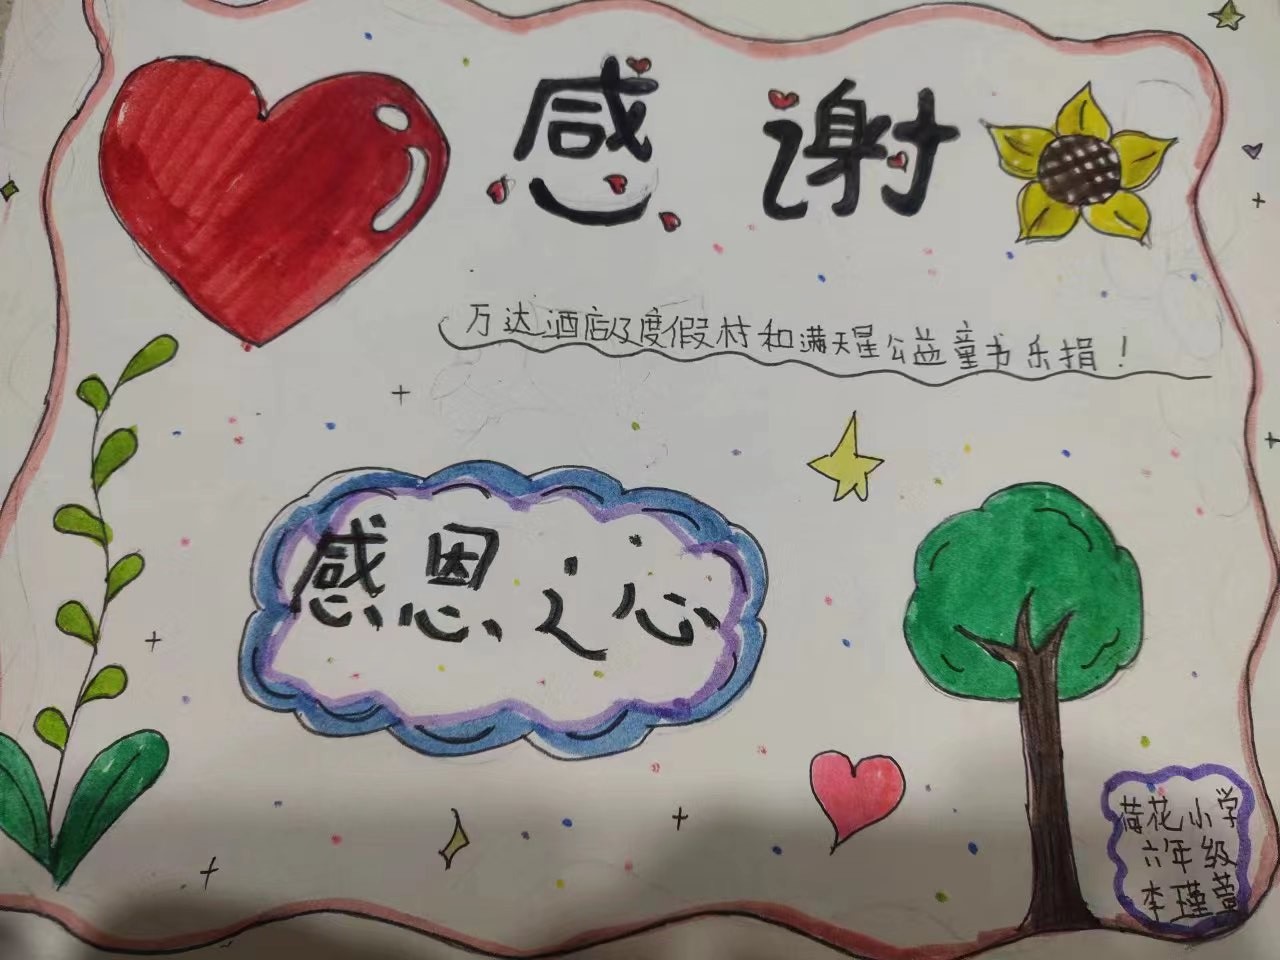 感谢
万达酒店及度假村和满天星公益童书乐捐！
感恩之心
荷花小学
六年级
李瑾萱